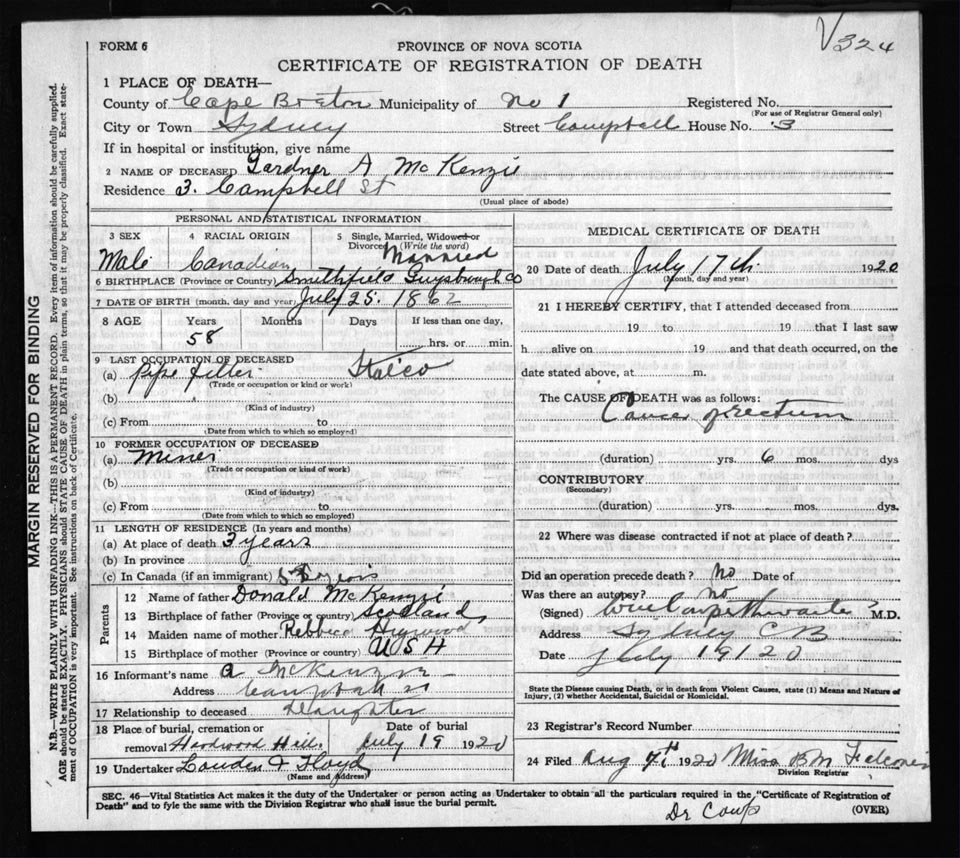 V324
FORM 6
PROVINCE OF NOVA SCOTIA
CERTIFICATE OF REGISTRATION OF DEATH
1 PLACE OF DEATH—
County of Cape Breton Municipality of No 1 Registered No.
(For use of Registrar General only)
City or Town Sydney Street Campbell House No. 3
If in hospital or institution, give name
2 NAME OF DECEASED Gardner A McKenzie
Residence 3. Campbell St
(Usual place of abode)
PERSONAL AND STATISTICAL INFORMATION
3 SEX 4 RACIAL ORIGIN 5 Single, Married, Widowed or Divorced (Write the word)
Male Canadian Married
6 BIRTHPLACE (Province or Country) Smithfield Guysborough Co
7 DATE OF BIRTH (month, day and year) July 25. 1862
8 AGE Years Months Days If less than one day,
58 hrs. or min.
9 LAST OCCUPATION OF DECEASED
(a) Pipe fitter Stalco
(Trade or occupation or kind or work)
(b)
(Kind of industry)
(c) From to
(Date from which to which so employed)
10 FORMER OCCUPATION OF DECEASED
(a) Miner
(Trade or occupation or kind of work)
(b)
(Kind of industry)
(c) From to
(Date from which to which so employed)
11 LENGTH OF RESIDENCE (In years and months)
(a) At place of death 3 years
(b) In province
(c) In Canada (if an immigrant) years
Parents
12 Name of father Donald McKenzie
13 Birthplace of father (Province or country) Scotland
14 Maiden name of mother Rebbeca
15 Birthplace of mother (Province or country) U S A
16 Informant's name A McKenzie
Address Campbell st
17 Relationship to deceased Daughter
18 Place of burial, cremation or removal Hardwood Hill. Date of burial July 19 1920
19 Undertaker Louden & Floyd
(Name and address)
MEDICAL CERTIFICATE OF DEATH
20 Date of death July 17th. 1920
(Month, day and year)
21 I HEREBY CERTIFY, that I attended deceased from
19 to 19 that I last saw
h alive on 19 and that death occurred, on the
date stated above, at m.
The CAUSE OF DEATH was as follows:
Cancer of rectum
(duration) yrs. 6 mos. dys
CONTRIBUTORY
(Secondary)
(duration) yrs. mos. dys.
22 Where was disease contracted if not at place of death?
Did an operation precede death? No Date of
Was there an autopsy? No
(Signed) M.D.
Address Sydney C B
Date July 19 1920
State the Disease causing Death, or in death from Violent Causes, state (1) Means and Nature of
Injury, (2) whether Accidental, Suicidal or Homicidal.
23 Registrar's Record Number
24 Filed Aug 7th 1920 Miss B M
Division Registrar
SEC. 46—Vital Statistics Act makes it the duty of the Undertaker or person acting as Undertaker to obtain all the particulars required in the "Certificate of Registration of
Death" and to fyle the same with the Division Registrar who shall issue the burial permit.
(OVER)
Dr Cowp
MARGIN RESERVED FOR BINDING
N.B.—WRITE PLAINLY WITH UNFADING INK—THIS IS A PERMANENT RECORD. Every item of information should be carefully supplied.
AGE should be stated EXACTLY. PHYSICIANS should STATE CAUSE OF DEATH in plain terms, so that it may be properly classified. Exact state-
ment of OCCUPATION is very important. See instructions on back of Certificate.